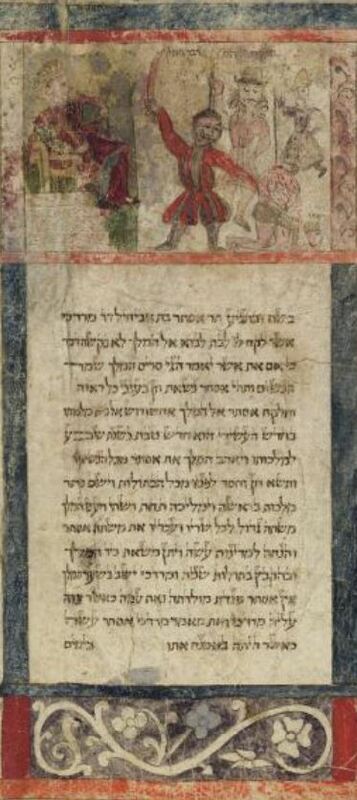 ובהגיע תר אסתר בת אביחיל דד מרדכי
אשר לקח לו לבת לבוא אל המלך לא בקשה דבר
כי אם את אשר יאמר הגי סריס המלך שמר
הנשים ותהי אסתר נשאת חן בעיני כל ראיה
ותלקח אסתר אל המלך אחשורוש אל בית מלכותו
בחדש העשירי הוא חדש טבת בשנת שבע
למלכותו ויאהב המלך את אסתר מכל הנשים
ותשא חן וחסד לפניו מכל הבתולות וישם כתר
מלכות בראשה וימליכה תחת ושתי ויעש המלך
משתה גדול לכל שריו ועבדיו את משתה אסתר
והנחה למדינות עשה ויתן משאת כיד המלך
ובהקבץ בתולות שנית ומרדכי ישב בשער המלך
אין אסתר מגדת מולדתה ואת עמה כאשר צוה
עליה מרדכי ואת מאמר מרדכי אסתר עשה
כאשר היתה באמנה אתו בימים